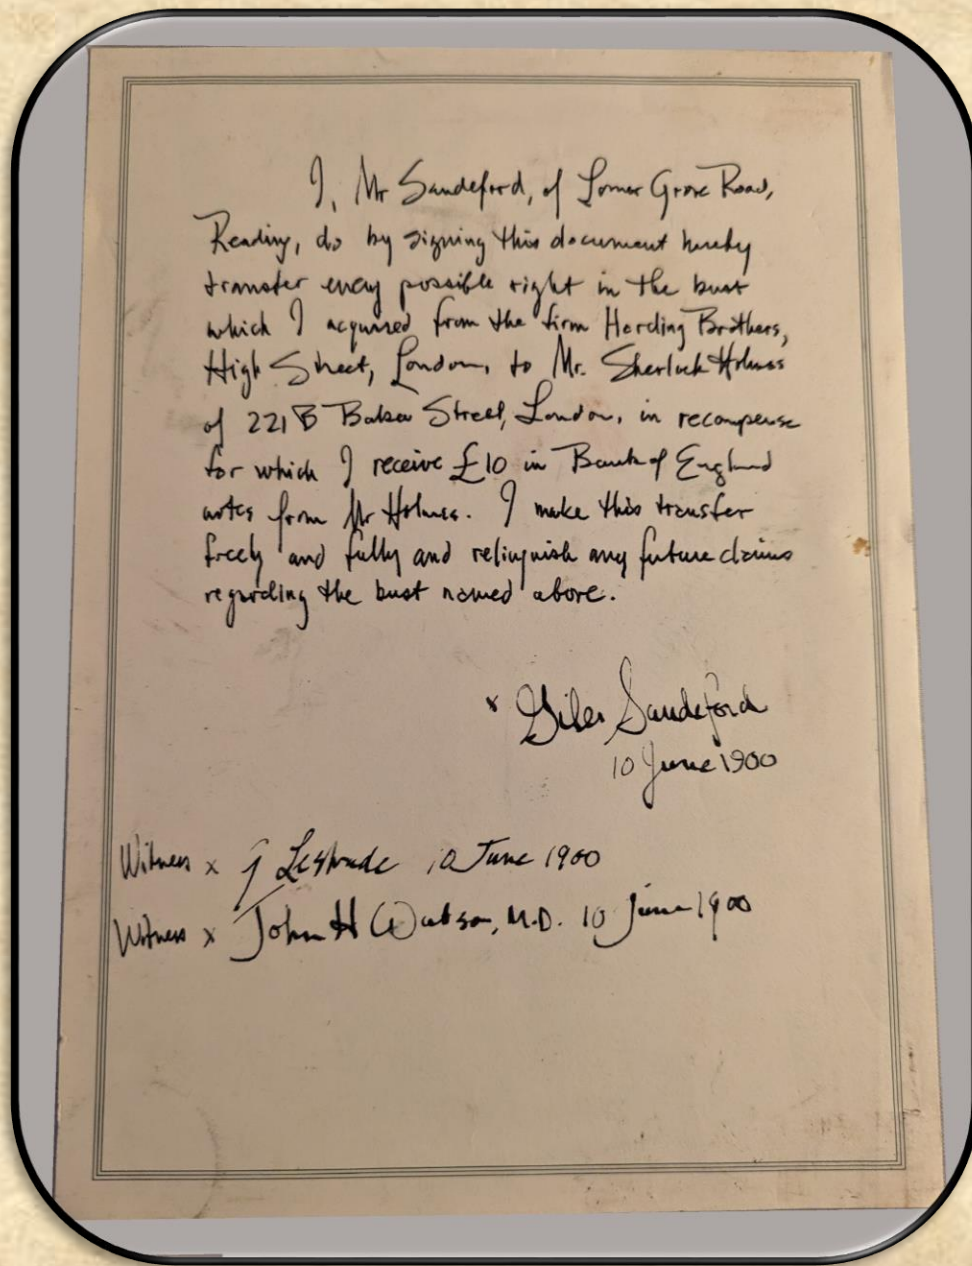 I, Mr Sandeford, of Lower Grove Road,
Reading, do by signing this document hereby
transfer every possible right in the bust
which I acquired from the firm Harding Brothers,
High Street, London, to Mr. Sherlock Holmes
of 221 B Baker Street, London, in recompense
for which I receive £10 in Bank of England
notes from Mr Holmes. I make this transfer
freely and fully and relinquish any future claims
regarding the bust named above.
x Giles Sandeford
10 June 1900
Witness x G Lestrade 10 June 1900
Witness x John H Watson, M.D. 10 June 1900